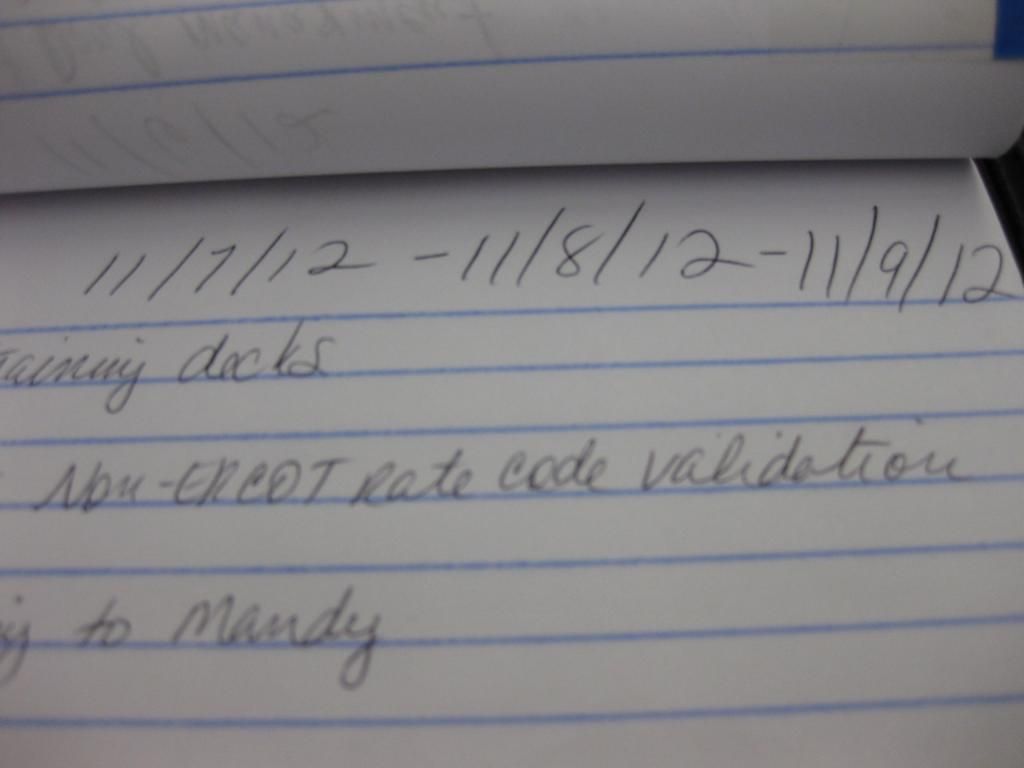 11/6/12
11/7/12 - 11/8/12 - 11/9/12
raining decks
Non-ERCOT Rate code validation
to Mandy